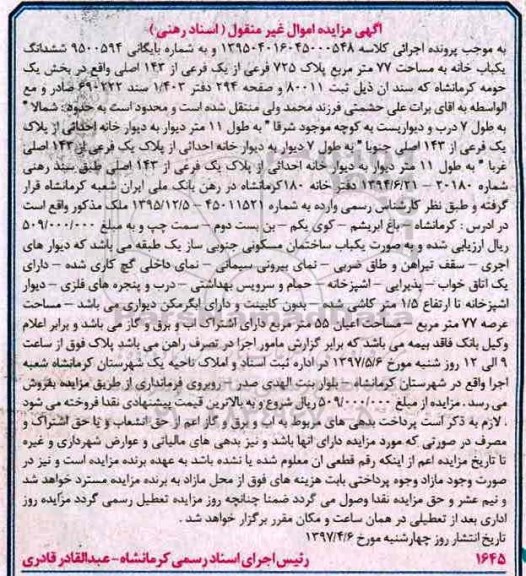 آگهی مزایده اموال غیر منقول ( اسناد رهنی )
به موجب پرونده اجرائی کلاسه ۱۳۹۵۰۴۰۱۶۰۴۵۰۰۰۵۴۸ و به شماره بایگانی ۹۵۰۰۵۹۴ ششدانگ
یکباب خانه به مساحت ۷۷ متر مربع پلاک ۷۲۵ فرعی از یک فرعی از ۱۴۳ اصلی واقع در بخش یک
حومه کرمانشاه که سند ان ذیل ثبت ۸۰۰۱۱ و صفحه ۲۹۴ دفتر ۱/۴۰۳ سند ۶۹۰۲۲۲ صادر و مع
الواسطه به اقای برات علی حشمتی فرزند محمد ولی منتقل شده است و محدود است به حدود: شمالا "
به طول ۷ درب و دیواریست به کوچه موجود شرقا " به طول ۱۱ متر دیوار به دیوار خانه احداثی از پلاک
یک فرعی از ۱۴۳ اصلی جنوبا " به طول ۷ دیوار به دیوار خانه احداثی از پلاک یک فرعی از ۱۴۳ اصلی
غربا " به طول ۱۱ متر دیوار به دیوار خانه احداثی از پلاک یک فرعی از ۱۴۳ اصلی طبق سند رهنی
شماره ۲۰۱۸۰ – ۱۳۹۴/۶/۲۱ دفتر خانه ۱۸۰ کرمانشاه در رهن بانک ملی ایران شعبه کرمانشاه قرار
گرفته و طبق نظر کارشناس رسمی وارده به شماره ۴۵۰۱۱۵۲۱ – ۱۳۹۵/۱۲/۵ ملک مذکور واقع است
در ادرس : کرمانشاه – باغ ابریشم – کوی یکم – بن بست دوم – سمت چپ و به مبلغ ۵۰۹/۰۰۰/۰۰۰
ریال ارزیابی شده و به صورت یکباب ساختمان مسکونی جنوبی ساز یک طبقه می باشد که دیوار های
اجری – سقف تیراهن و طاق ضربی – نمای بیرونی سیمانی – نمای داخلی گچ کاری شده – دارای
یک اتاق خواب – پذیرایی – اشپزخانه – حمام و سرویس بهداشتی – درب و پنجره های فلزی – دیوار
اشپزخانه تا ارتفاع ۱/۵ متر کاشی شده – بدون کابینت و دارای ابگرمکن دیواری می باشد – مساحت
عرصه ۷۷ متر مربع – مساحت اعیان ۵۵ متر مربع دارای اشتراک اب و برق و گاز می باشد و برابر اعلام
وکیل بانک فاقد بیمه می باشد که برابر گزارش مامور اجرا در تصرف راهن می باشد پلاک فوق از ساعت
۹ الی ۱۲ روز شنبه مورخ ۱۳۹۷/۵/۶ در اداره ثبت اسناد و املاک ناحیه یک شهرستان کرمانشاه شعبه
اجرا واقع در شهرستان کرمانشاه – بلوار بنت الهدی صدر – روبروی فرمانداری از طریق مزایده بفروش
می رسد . مزایده از مبلغ ۵۰۹/۰۰۰/۰۰۰ ریال شروع و به بالاترین قیمت پیشنهادی نقدا فروخته می شود
. لازم به ذکر است پرداخت بدهی های مربوط به اب و برق و گاز اعم از حق انشعاب و یا حق اشتراک و
مصرف در صورتی که مورد مزایده دارای انها باشد و نیز بدهی های مالیاتی و عوارض شهرداری و غیره
تا تاریخ مزایده اعم از اینکه رقم قطعی ان معلوم شده یا نشده باشد به عهده برنده مزایده است و نیز در
صورت وجود مازاد وجوه پرداختی بابت هزینه های فوق از محل مازاد به برنده مزایده مسترد خواهد شد
و نیم عشر و حق مزایده نقدا وصول می گردد ضمنا چنانچه روز مزایده تعطیل رسمی گردد مزایده روز
اداری بعد از تعطیلی در همان ساعت و مکان مقرر برگزار خواهد شد .
تاریخ انتشار روز چهارشنبه مورخ ۱۳۹۷/۴/۶
رئیس اجرای اسناد رسمی کرمانشاه – عبدالقادر قادری ۱۶۴۵